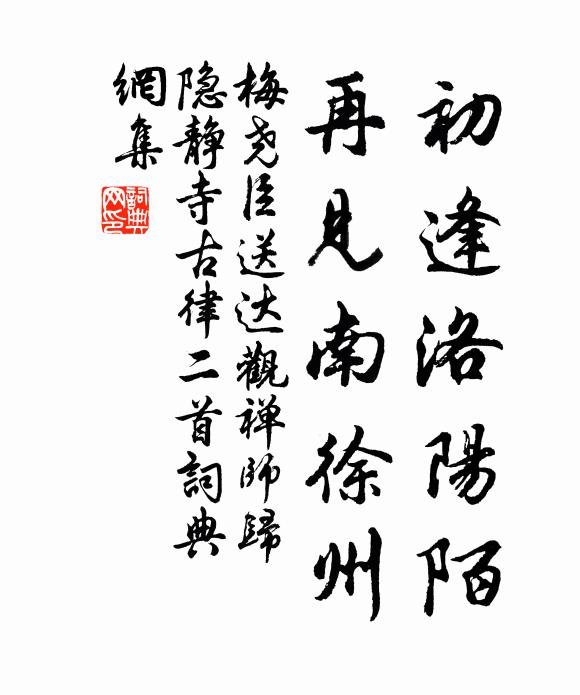 初逢洛陽陌
再見南徐州
梅尧臣送达觀禅师歸
隐静寺古律二首詞典
網集
詞典網印